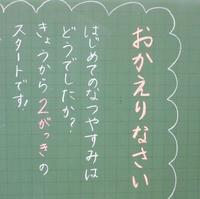 おかえりなさい
はじめてのなつやすみは
どうでしたか?
きょうから2がっきの
スタートです!